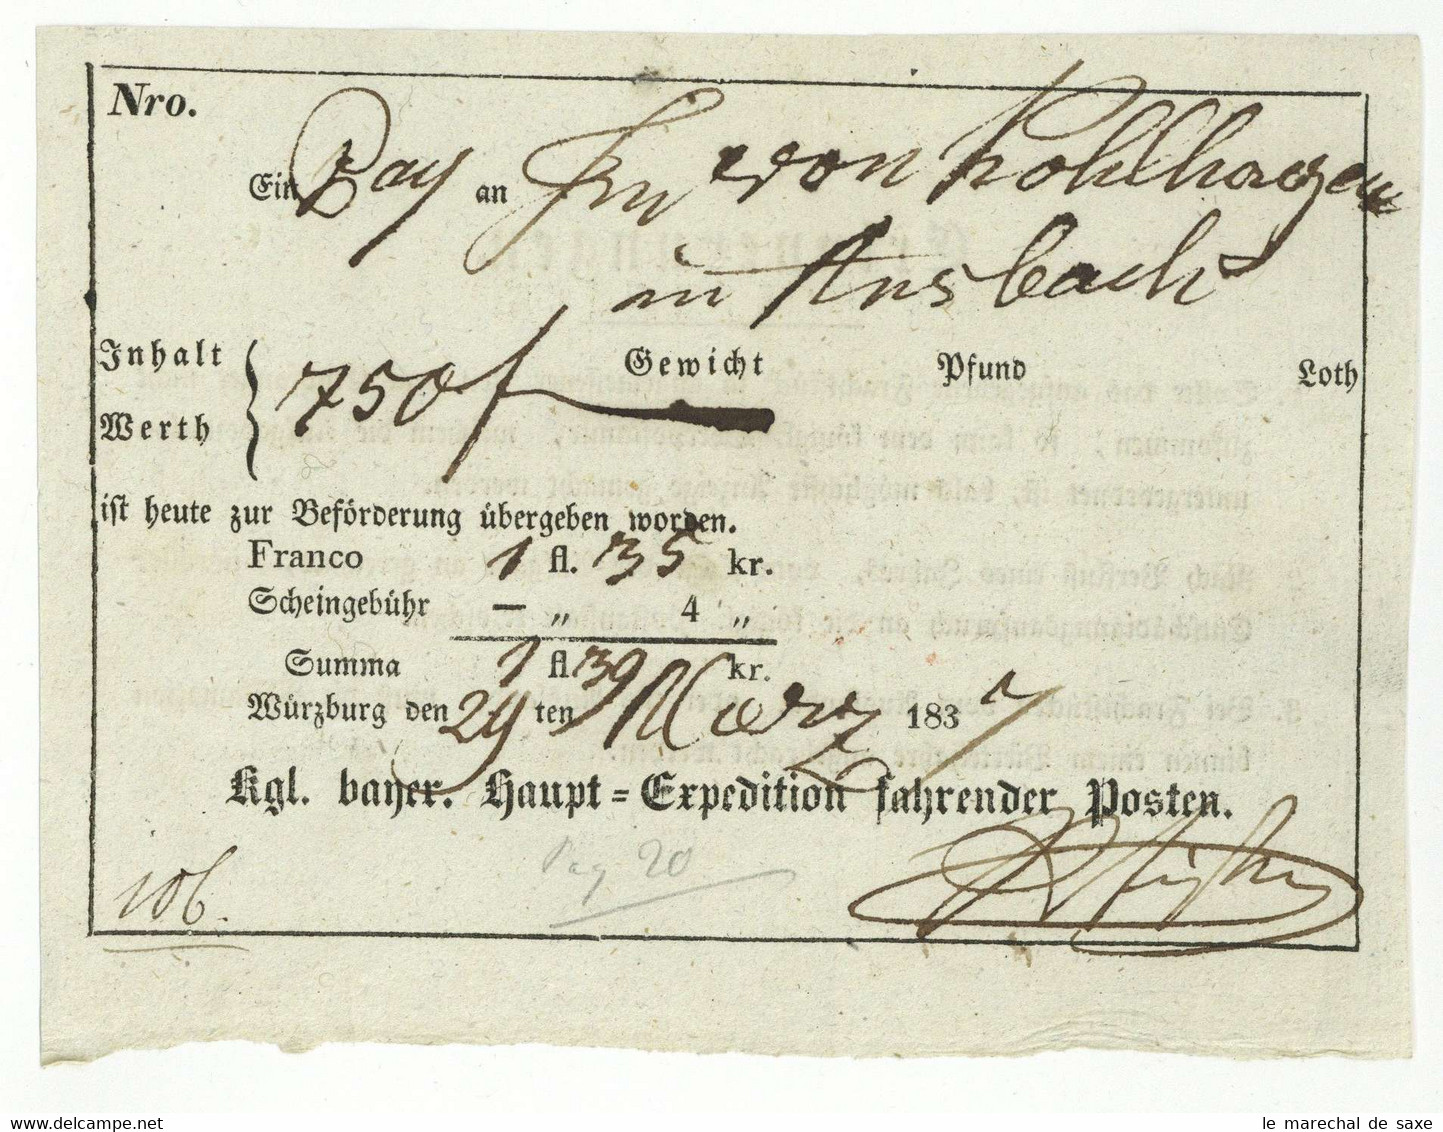 Nro.
Ein Pay an Frn von Kohlhagen
in Ansbach
Inhalt
Werth } 750 f Gewicht Pfund Loth
ist heute zur Beförderung übergeben worden.
Franco 1 fl. 35 kr.
Scheingebühr — „ 4 „
Summa 1 fl. 39 kr.
Würzburg den 29 ten März 1837
Kgl. bayer. Haupt=Expedition fahrender Posten.
106.
Pag 20
le marechal de saxe